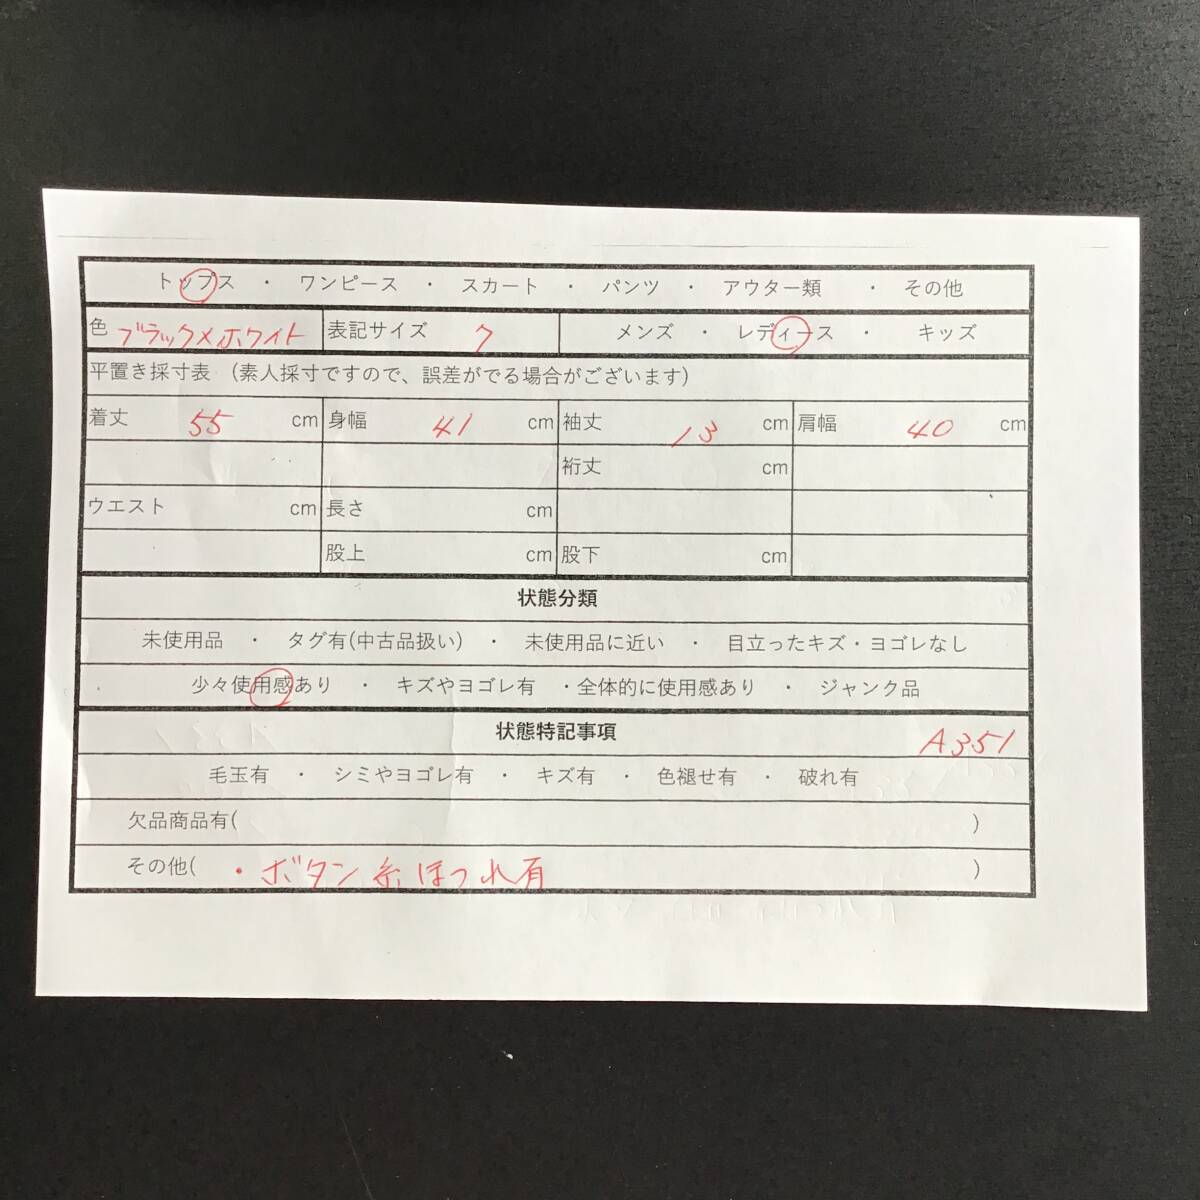 トップス ・ ワンピース ・ スカート ・ パンツ ・ アウター類 ・ その他
色 ブラック×ホワイト 表記サイズ 7 メンズ ・ レディース ・ キッズ
平置き採寸表 (素人採寸ですので、誤差がでる場合がございます)
着丈 55 cm 身幅 41 cm 袖丈 13 cm 肩幅 40 cm
裄丈 cm
ウエスト cm 長さ cm
股上 cm 股下 cm
状態分類
未使用品 ・ タグ有(中古品扱い) ・ 未使用品に近い ・ 目立ったキズ・ヨゴレなし
少々使用感あり ・ キズやヨゴレ有 ・全体的に使用感あり ・ ジャンク品
状態特記事項 A351
毛玉有 ・ シミやヨゴレ有 ・ キズ有 ・ 色褪せ有 ・ 破れ有
欠品商品有( )
その他( ・ボタン糸ほつれ有 )